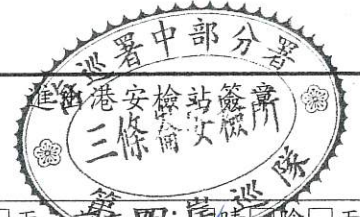 巡署中部分署
進出港安檢站簽章
三條崙安檢所
第四岸巡隊